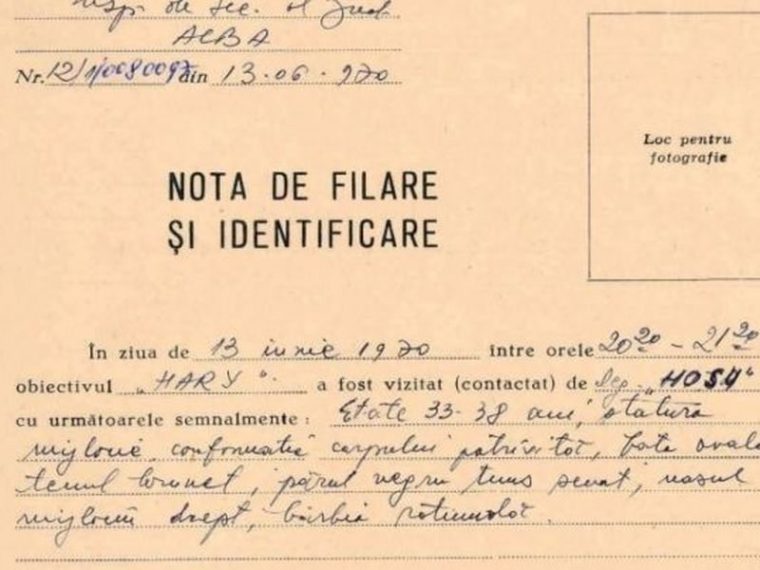 Insp. de Sec. al Jud.
ALBA
Nr. 12/1/0080097 din 13.06.970
Loc pentru
fotografie
NOTA DE FILARE
ȘI IDENTIFICARE
În ziua de 13 iunie 1970 între orele 20²⁰ – 21²⁰
obiectivul „HARY“ a fost vizitat (contactat) de leg. „HOSU“
cu următoarele semnalmente: Etate 33-38 ani, statura
mijlocie, conformația corpului potrivitot, fața ovală
tenul brunet, părul negru tuns scurt, nasul
mijlociu drept, bărbia rotundă.